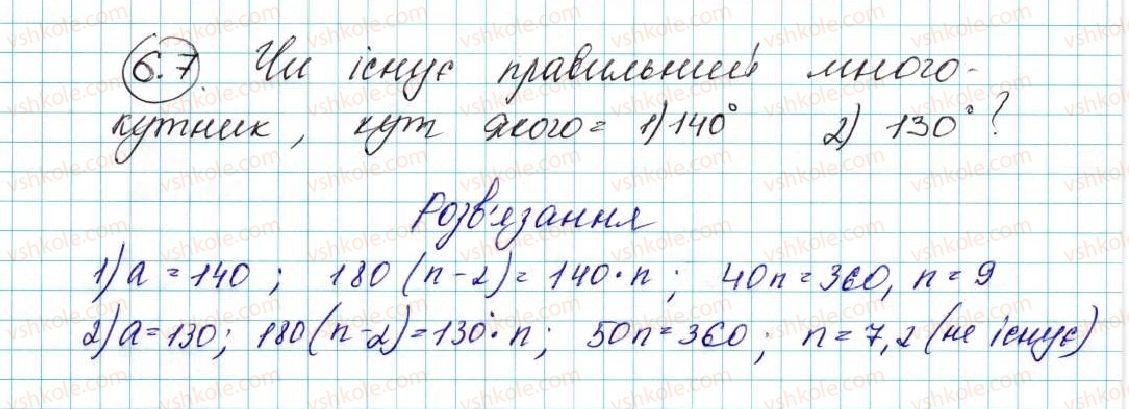 6.7. Чи існує правильний много-
кутник, кут якого = 1) 140° 2) 130°?
Розв'язання
1) a = 140 ; 180 (n - 2) = 140 · n ; 40n = 360, n = 9
2) a = 130; 180 (n - 2) = 130° · n; 50n = 360 ; n = 7,2 (не існує)
vshkole.com